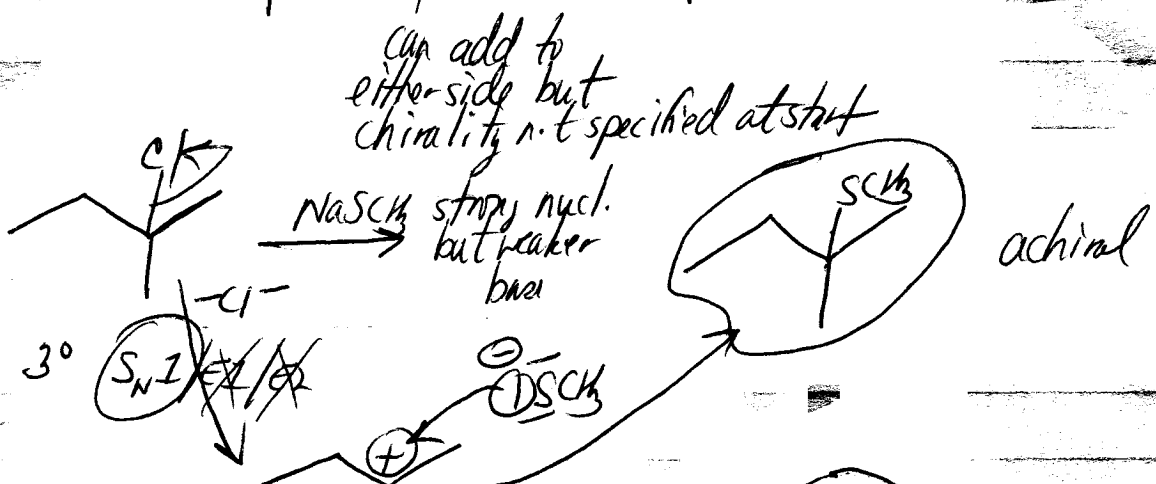 can add to
either side but
chirality not specified at start
Cl
NaSCH3 strong nucl.
but weaker
base
SCH3
achiral
-Cl-
3° SN1/E1/E2
⊖
SCH3
+